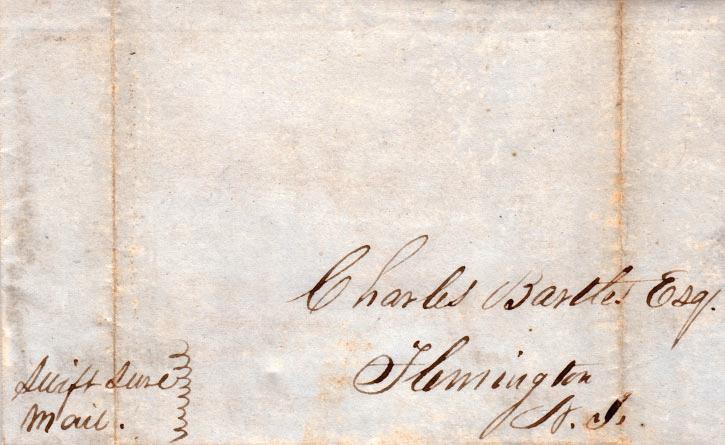 Charles Bartles Esq.
Flemington
N. J.
Swift Sure
Mail.